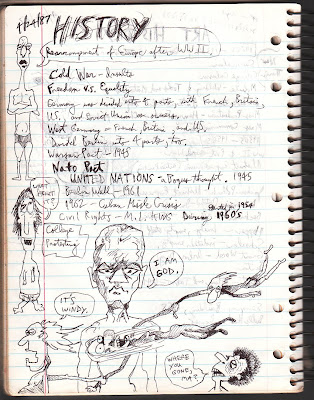 4/24/87
HISTORY
Rearrangement of Europe after WW II
Cold War - Insults
Freedom V.S. Equality
Germany was divided into 4 parts, with French, Britain,
U.S. and Soviet Union as
West Germany = French, Britain, and U.S.
Divided Berlin into 4 parts, too.
Warsaw Pact - 1945
Nato Pact
UNITED NATIONS - a Bogus thought. 1945
Berlin Wall - 1961
1962 - Cuban Missle Crisis
Started in 1954
Civil Rights - M.L. KING During 1960's
College
Protesting
WHAT ABOUT IT?
I AM GOD.
IT'S WINDY.
WHERE YOU GOING, MA?